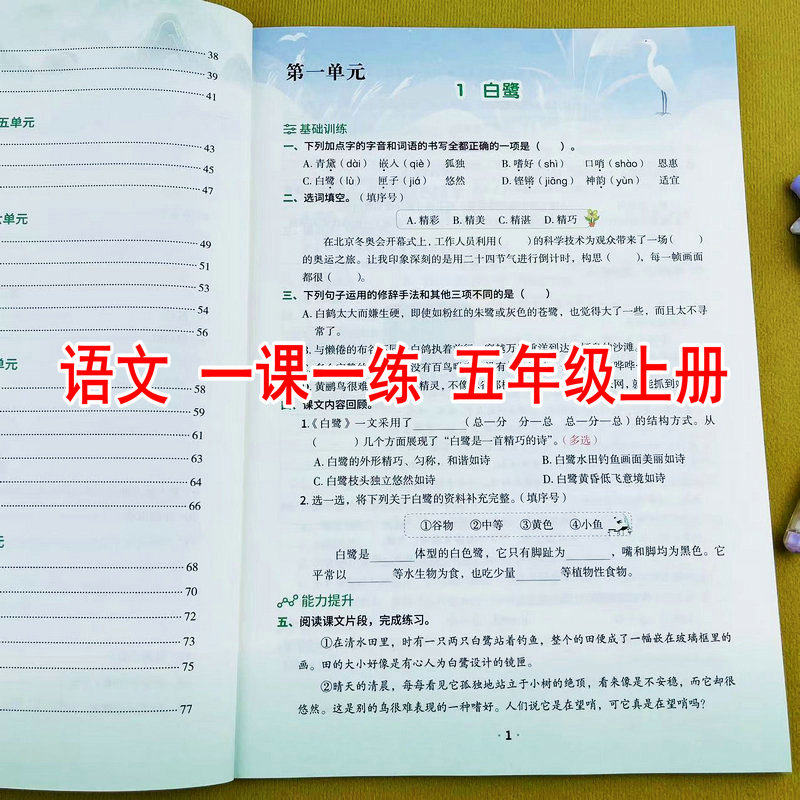 38
39
41
五单元
43
45
47
单元
49
51
53
54
56
单元
58
59
61
63
64
66
元
68
70
72
73
75
77
第一单元
1 白鹭
基础训练
一、下列加点字的字音和词语的书写全都正确的一项是（ ）。
A. 青黛（dài） 嵌入（qiè） 孤独 B. 嗜好（shì） 口哨（shào） 恩惠
C. 白鹭（lù） 匣子（jiá） 悠然 D. 铿锵（jiāng） 神韵（yùn） 适宜
二、选词填空。（填序号）
A. 精彩 B. 精美 C. 精湛 D. 精巧
在北京冬奥会开幕式上，工作人员利用（ ）的科学技术为观众带来了一场（ ）
的奥运之旅。让我印象深刻的是用二十四节气进行倒计时，构思（ ），每一帧画面
都很（ ）。
三、下列句子运用的修辞手法和其他三项不同的是（ ）
A. 白鹤太大而嫌生硬，即使如粉红的朱鹭或灰色的苍鹭，也觉得大了一些，而且太不寻
常了。
语文 一课一练 五年级上册
B. 与懒倦的布谷
沙滩。
没有百鸟
D. 黄鹂鸟很难
四、课文内容回顾。
1.《白鹭》一文采用了________（总—分 分—总 总—分—总）的结构方式。从
（ ）几个方面展现了“白鹭是一首精巧的诗”。（多选）
A. 白鹭的外形精巧、匀称，和谐如诗 B. 白鹭水田钓鱼画面美丽如诗
C. 白鹭枝头独立悠然如诗 D. 白鹭黄昏低飞意境如诗
2. 选一选，将下列关于白鹭的资料补充完整。（填序号）
①谷物 ②中等 ③黄色 ④小鱼
白鹭是______体型的白色鹭，它只有脚趾为______，嘴和脚均为黑色。它
平常以______等水生物为食，也吃少量______等植物性食物。
能力提升
五、阅读课文片段，完成练习。
①在清水田里，时有一只两只白鹭站着钓鱼，整个的田便成了一幅嵌在玻璃框里的
画。田的大小好像是有心人为白鹭设计的镜匣。
②晴天的清晨，每每看见它孤独地站立于小树的绝顶，看来像是不安稳，而它却很
悠然。这是别的鸟很难表现的一种嗜好。人们说它是在望哨，可它真是在望哨吗？
· 1 ·